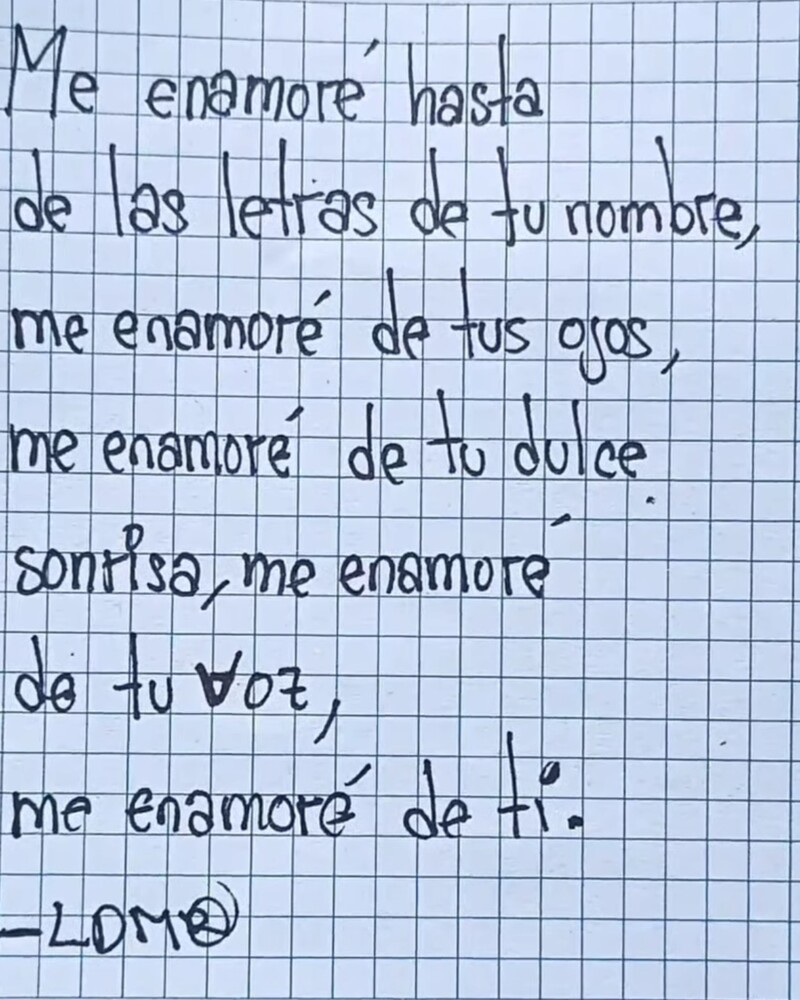 Me enamoré hasta
de las letras de tu nombre,
me enamoré de tus ojos,
me enamoré de tu dulce
sonrisa, me enamoré
de tu voz,
me enamoré de ti.
-LDM®